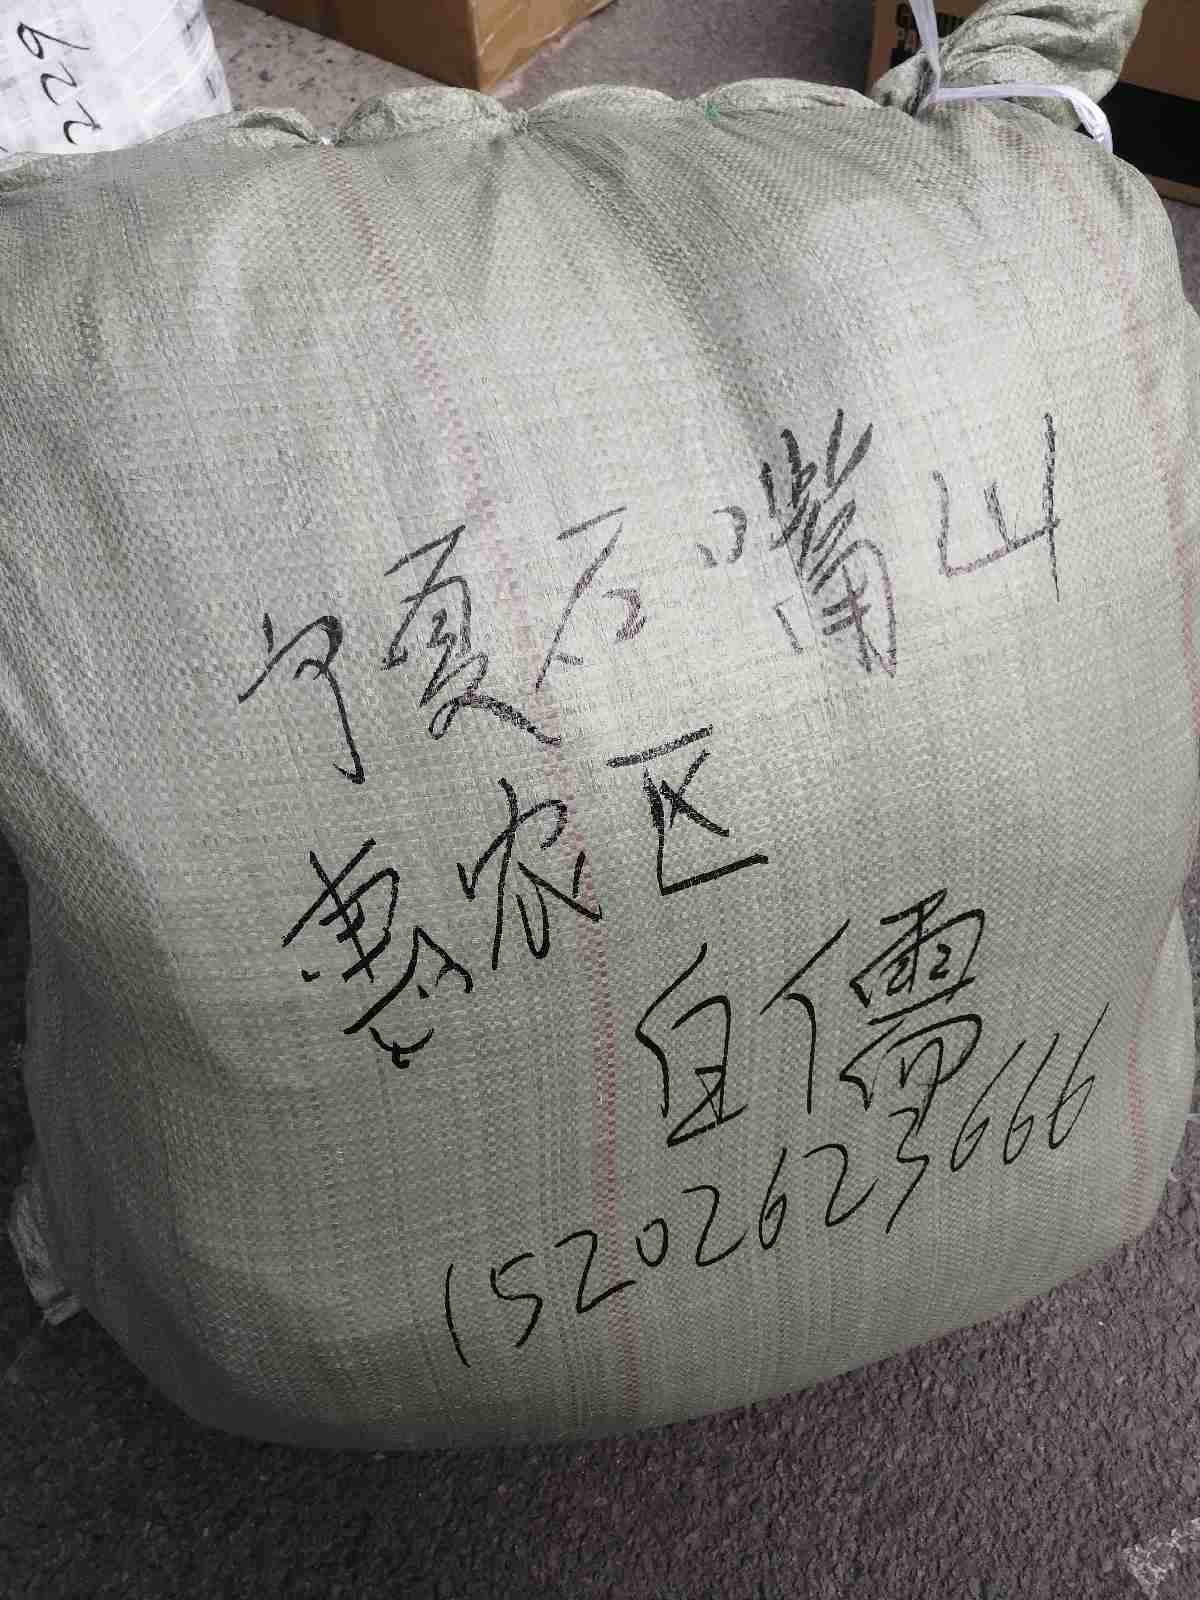 229
宁夏石嘴山
惠农区
白儒
15202623666